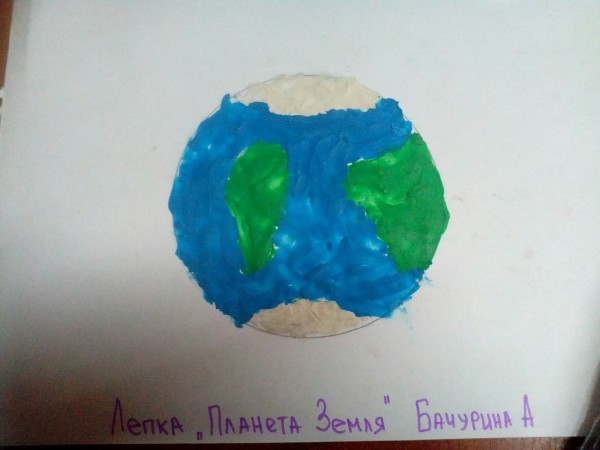 Лепка „Планета Земля" Бачурина А